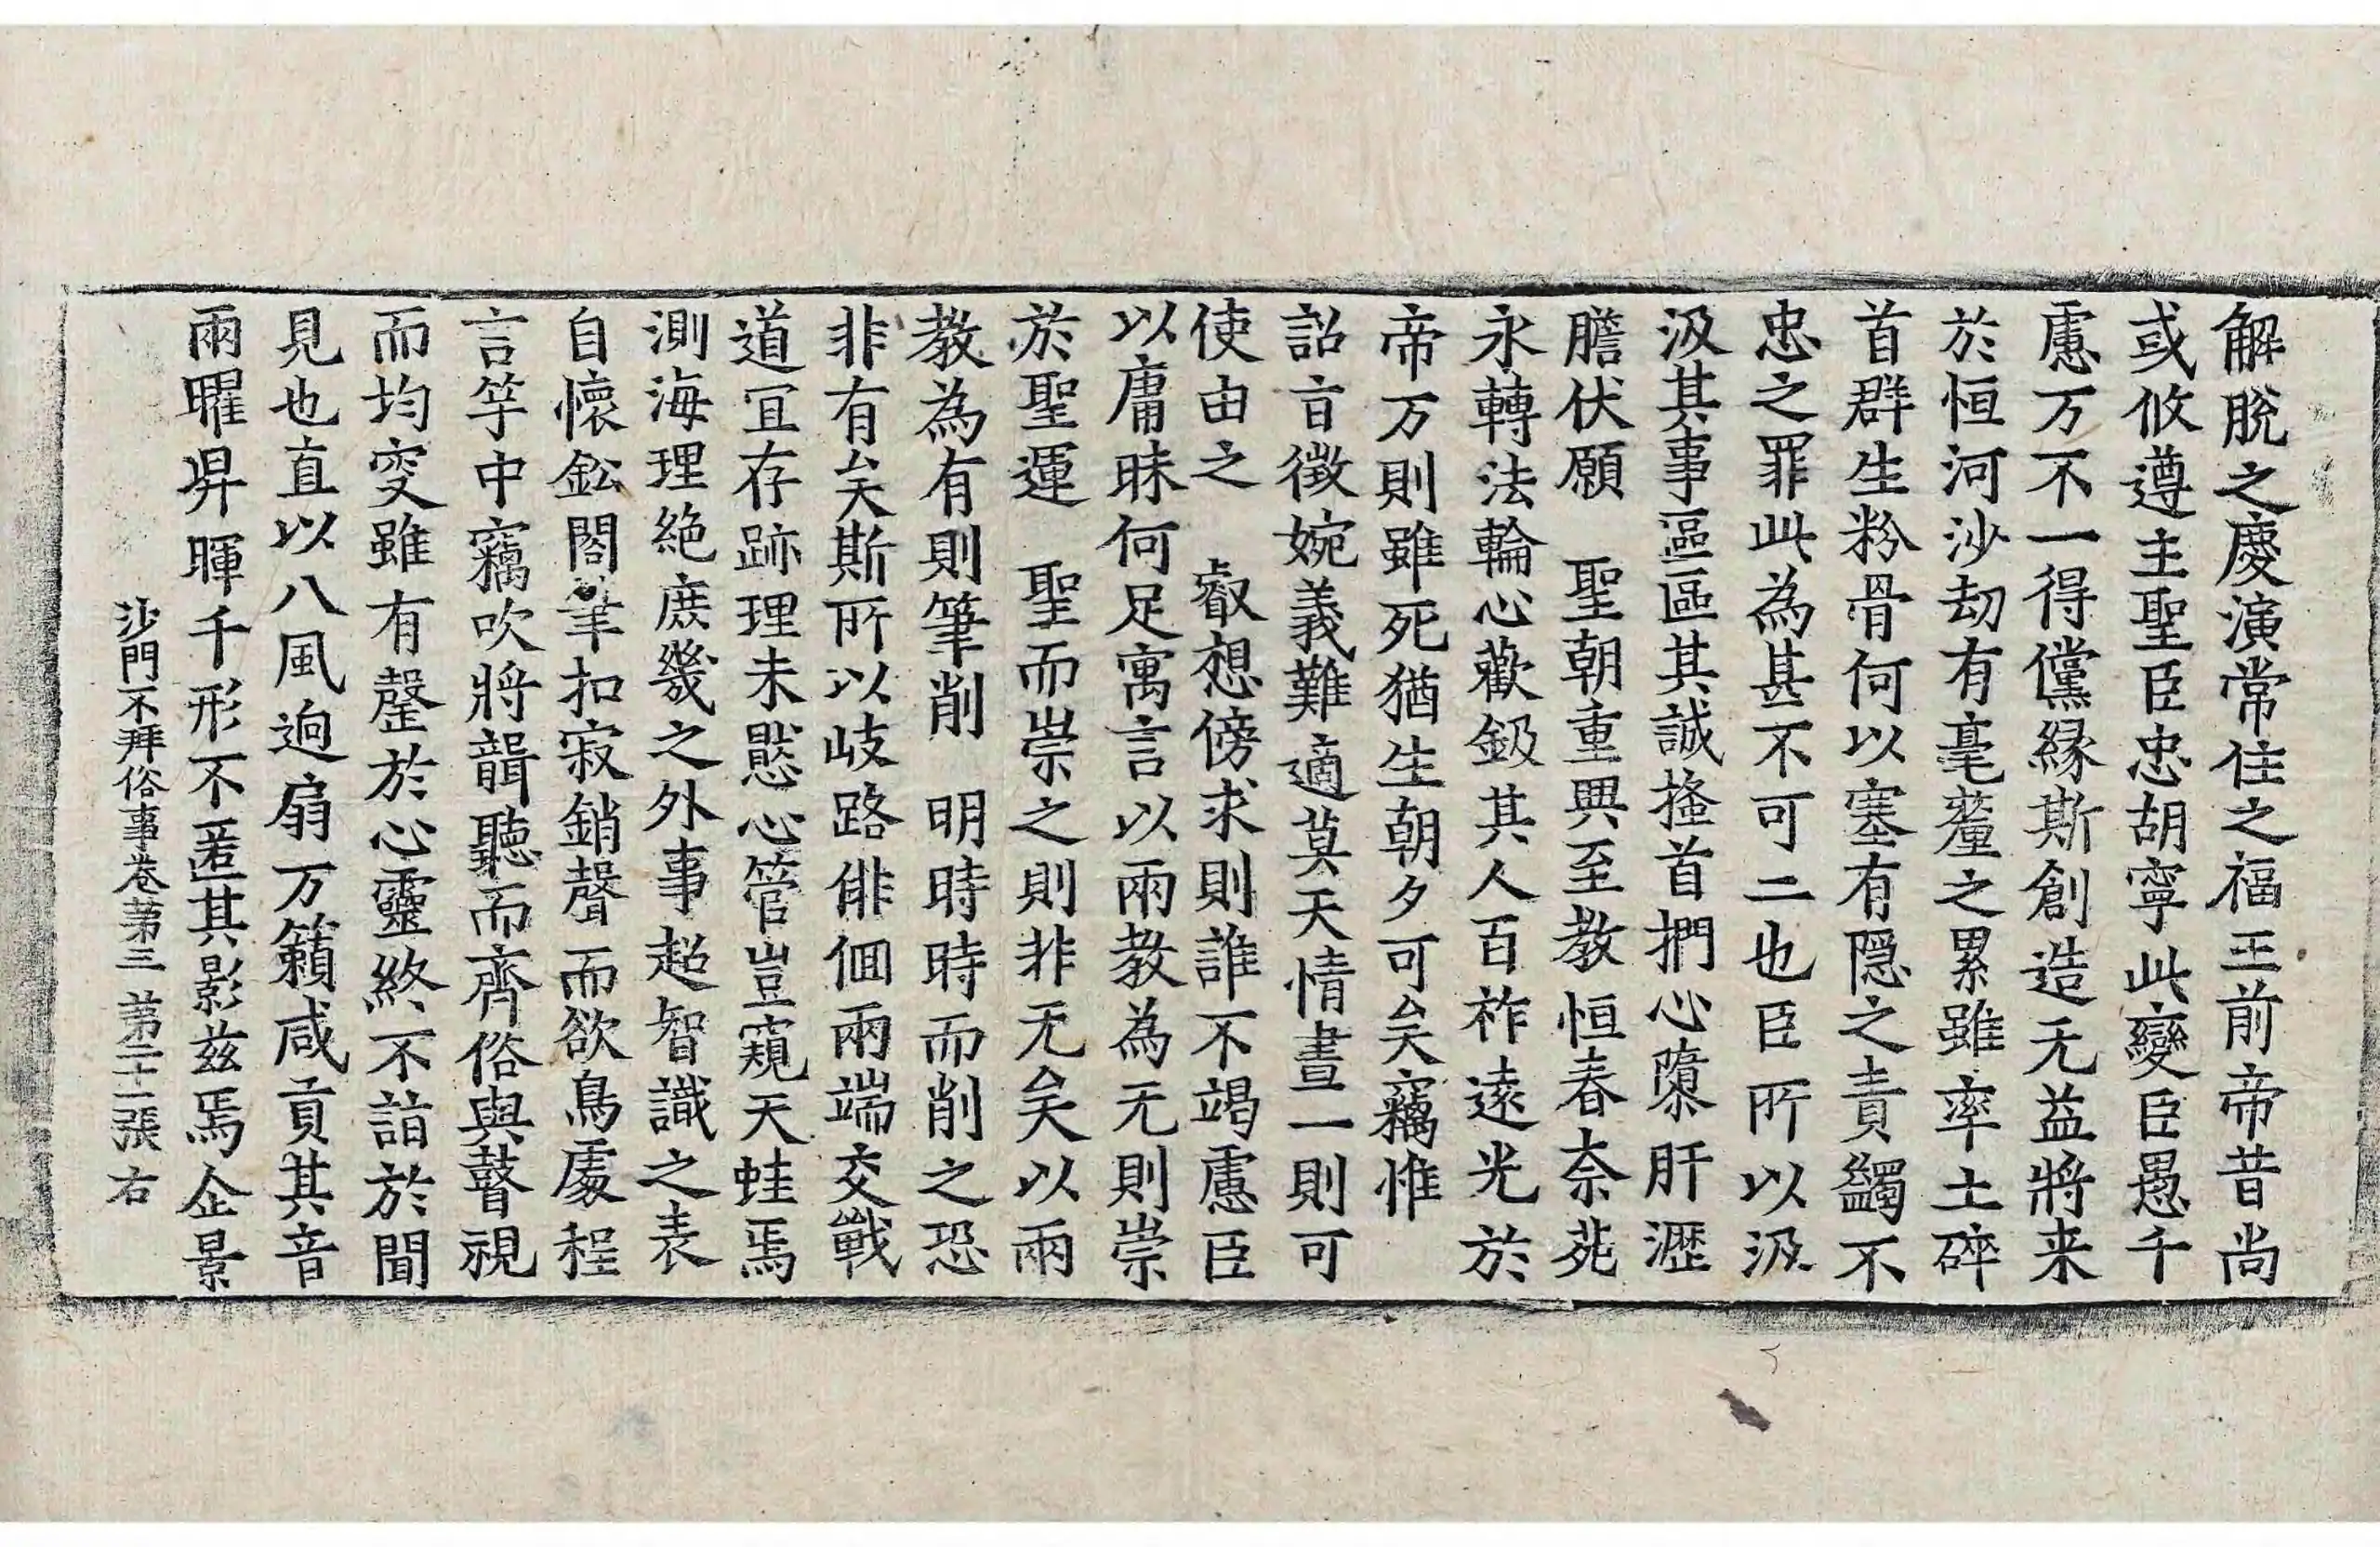 解脫之慶演常住之福王前帝昔尚
或攸遵主聖臣忠胡寧此變臣愚千
慮万不一得儻緣斯創造无益將来
於恒河沙劫有毫釐之累雖率土碎
首群生粉骨何以塞有隠之責蠲不
忠之罪此為甚不可二也臣所以汲
汲其事區區其誠搔首捫心隳肝瀝
膽伏願　聖朝重興至教恒春奈苑
永轉法輪心歡鈒其人百祚遠光於
帝万則雖死猶生朝夕可矣竊惟
詔旨徵婉義難適莫天情晝一則可
使由之　叡想傍求則誰不竭慮臣
以庸昧何足寓言以兩教為无則崇
於聖運　聖而崇之則非无矣以兩
教為有則筆削　明時時而削之恐
非有矣斯所以岐路俳佪兩端交戰
道冝存跡理未愍心管豈窺天蛙焉
測海理絶庶幾之外事超智識之表
自懷鈆閣筆扣寂銷聲而欲鳥處程
言竽中竊吹將韻聽而齊俗與瞽視
而均叜雖有罄於心靈終不詣於聞
見也直以八風迥扇万籟咸貢其音
兩曜昇暉千形不匿其影兹焉企景
沙門不拜俗事卷苐三 苐二十二張 右